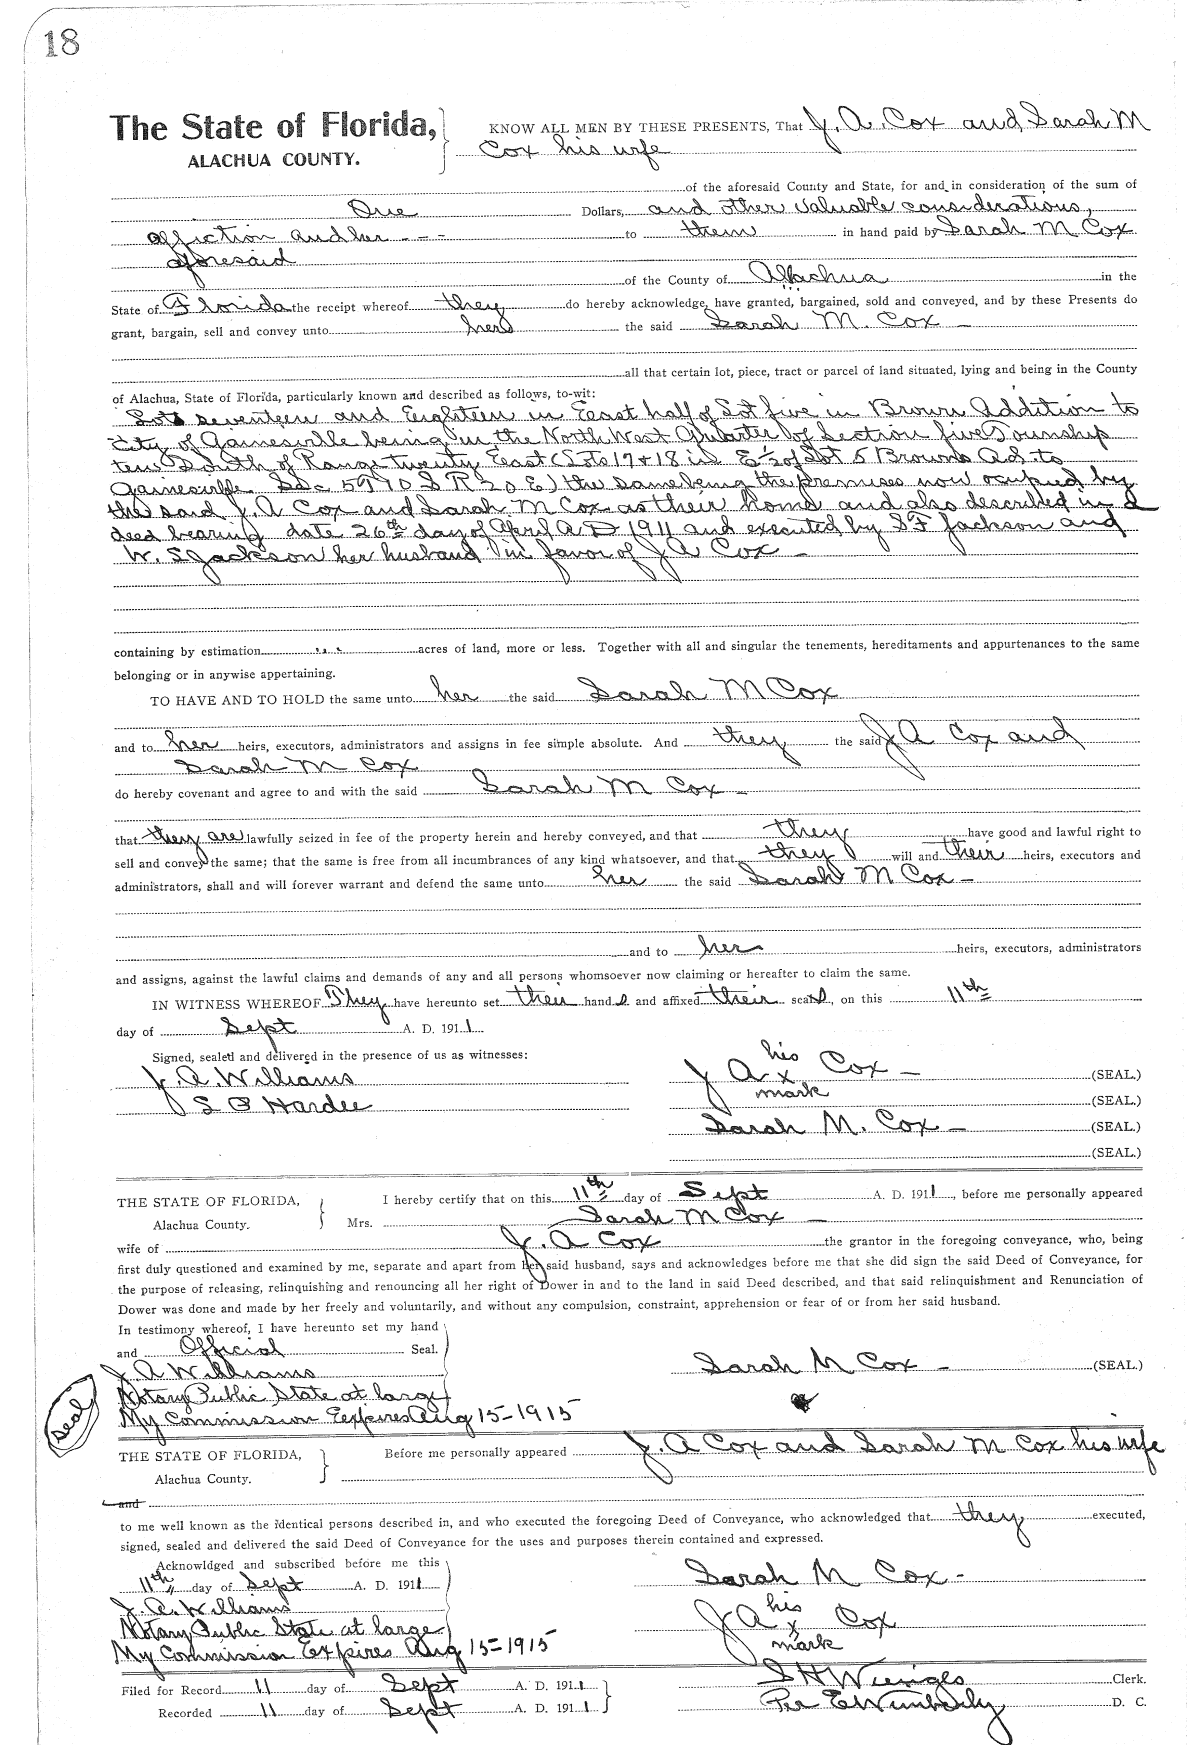 18
The State of Florida,
ALACHUA COUNTY.
KNOW ALL MEN BY THESE PRESENTS, That J. A. Cox and Sarah M
Cox his wife
of the aforesaid County and State, for and in consideration of the sum of
One Dollars, and other valuable considerations,
to them in hand paid by Sarah M Cox
aforesaid
of the County of Alachua in the
State of Florida the receipt whereof they do hereby acknowledge, have granted, bargained, sold and conveyed, and by these Presents do
grant, bargain, sell and convey unto her the said Sarah M. Cox
all that certain lot, piece, tract or parcel of land situated, lying and being in the County
of Alachua, State of Florida, particularly known and described as follows, to-wit:
Lots seventeen and Eighteen in East half of Lot five in Brown Addition to
City of Gainesville being in the North West Quarter of Section five Township
ten South of Range twenty East (Lots 17 & 18 in E½ of Lot 5 Browns Ad. to
Gainesville Sec 5 T 10 S R 20 E) the same being the premises now ocupied by
the said J. A Cox and Sarah M Cox as their home and also described in a
deed bearing date 26th day of April A.D 1911 and executed by S F Jackson and
W. S Jackson her husband in favor of J A Cox
containing by estimation acres of land, more or less. Together with all and singular the tenements, hereditaments and appurtenances to the same
belonging or in anywise appertaining.
TO HAVE AND TO HOLD the same unto her the said Sarah M Cox
and to her heirs, executors, administrators and assigns in fee simple absolute. And they the said J A Cox and
Sarah M Cox
do hereby covenant and agree to and with the said Sarah M Cox
that they are lawfully seized in fee of the property herein and hereby conveyed, and that they have good and lawful right to
sell and convey the same; that the same is free from all incumbrances of any kind whatsoever, and that they will and their heirs, executors and
administrators, shall and will forever warrant and defend the same unto her the said Sarah M Cox
and to her heirs, executors, administrators
and assigns, against the lawful claims and demands of any and all persons whomsoever now claiming or hereafter to claim the same.
IN WITNESS WHEREOF They have hereunto set their hands and affixed their seals, on this 11th
day of Sept A. D. 1911
Signed, sealed and delivered in the presence of us as witnesses:
J. A. Williams
S B Hardee
his
J A x Cox (SEAL.)
mark (SEAL.)
Sarah M. Cox (SEAL.)
(SEAL.)
THE STATE OF FLORIDA,
Alachua County.
I hereby certify that on this 11th day of Sept A. D. 1911, before me personally appeared
Mrs. Sarah M Cox
wife of J. A Cox the grantor in the foregoing conveyance, who, being
first duly questioned and examined by me, separate and apart from her said husband, says and acknowledges before me that she did sign the said Deed of Conveyance, for
the purpose of releasing, relinquishing and renouncing all her right of Dower in and to the land in said Deed described, and that said relinquishment and Renunciation of
Dower was done and made by her freely and voluntarily, and without any compulsion, constraint, apprehension or fear of or from her said husband.
In testimony whereof, I have hereunto set my hand
and Official Seal.
J. A Williams
Notary Public State at large
My Commission Expires Aug 15-1915
Seal
Sarah M Cox (SEAL.)
THE STATE OF FLORIDA,
Alachua County.
Before me personally appeared J. A Cox and Sarah M Cox his wife
and
to me well known as the identical persons described in, and who executed the foregoing Deed of Conveyance, who acknowledged that they executed,
signed, sealed and delivered the said Deed of Conveyance for the uses and purposes therein contained and expressed.
Acknowldged and subscribed before me this
11th day of Sept A. D. 1911
J. A. Williams
Notary Public State at large
My Commission Expires Aug 15-1915
Sarah M Cox
his
J A x Cox
mark
Filed for Record 11 day of Sept A. D. 1911
Recorded 11 day of Sept A. D. 1911
S H Wienges Clerk.
Per E Wimberly D. C.